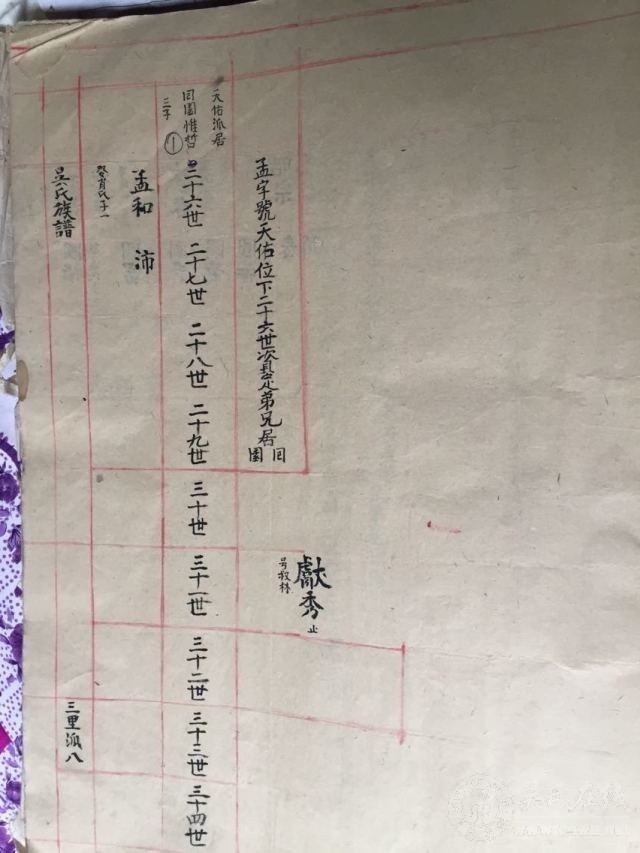 獻秀止
号牧林
孟字號天佑位下二十六世次真定弟兄居回園
天佑派居
回園惟哲①
三子
二十六世 二十七世 二十八世 二十九世 三十世 三十一世 三十二世 三十三世 三十四世
孟和 沛
吳氏族譜
三里派八